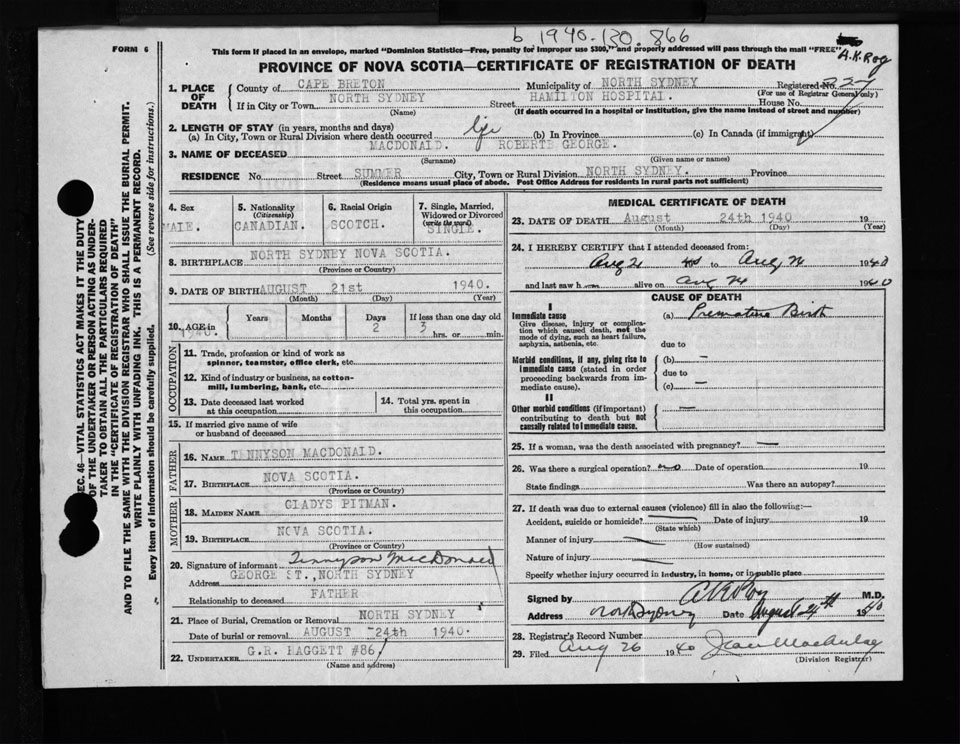 b 1940.130.866
FORM 6
This form if placed in an envelope, marked "Dominion Statistics—Free, penalty for improper use $300," and properly addressed will pass through the mail "FREE"
A.K. Roy
PROVINCE OF NOVA SCOTIA—CERTIFICATE OF REGISTRATION OF DEATH
1. PLACE OF DEATH County of CAPE BRETON Municipality of NORTH SYDNEY Registered No. 227
(For use of Registrar General only)
If in City or Town NORTH SYDNEY Street HAMILTON HOSPITAL. House No.
(Name) (If death occurred in a hospital or institution, give the name instead of street and number)
2. LENGTH OF STAY (in years, months and days)
(a) In City, Town or Rural Division where death occurred life (b) In Province (c) In Canada (if immigrant)
3. NAME OF DECEASED MACDONALD. ROBERTE GEORGE.
(Surname) (Given name or names)
RESIDENCE No. Street SUMMER City, Town or Rural Division NORTH SYDNEY. Province
(Residence means usual place of abode. Post Office Address for residents in rural parts not sufficient)
4. Sex MALE.
5. Nationality (Citizenship) CANADIAN.
6. Racial Origin SCOTCH.
7. Single, Married, Widowed or Divorced (write the word) SINGLE.
8. BIRTHPLACE NORTH SYDNEY NOVA SCOTIA.
(Province or Country)
9. DATE OF BIRTH AUGUST 21st 1940.
(Month) (Day) (Year)
10. AGE in 1940. Years Months Days 2 If less than one day old 3 hrs. or min.
OCCUPATION
11. Trade, profession or kind of work as spinner, teamster, office clerk, etc.
12. Kind of industry or business, as cotton-mill, lumbering, bank, etc.
13. Date deceased last worked at this occupation
14. Total yrs. spent in this occupation
15. If married give name of wife or husband of deceased
FATHER
16. NAME TENNYSON MACDONALD.
17. BIRTHPLACE NOVA SCOTIA.
(Province or Country)
MOTHER
18. MAIDEN NAME GLADYS PITMAN.
19. BIRTHPLACE NOVA SCOTIA.
(Province or Country)
20. Signature of informant Tennyson MacDonald
Address GEORGE ST., NORTH SYDNEY
Relationship to deceased FATHER
21. Place of Burial, Cremation or Removal NORTH SYDNEY
Date of burial or removal AUGUST 24th 1940.
22. UNDERTAKER G.R. BAGGETT #86
(Name and address)
MEDICAL CERTIFICATE OF DEATH
23. DATE OF DEATH August 24th 1940 19
(Month) (Day) (Year)
24. I HEREBY CERTIFY that I attended deceased from:
Aug 21 to Aug 24 1940
and last saw h alive on Aug 24 1940
CAUSE OF DEATH
I
Immediate cause (a) Premature Birth
Give disease, injury or complication which caused death, not the mode of dying, such as heart failure, asphyxia, asthenia, etc.
due to
Morbid conditions, if any, giving rise to immediate cause (stated in order proceeding backwards from immediate cause).
(b) —
due to
(c) —
II
Other morbid conditions (if important) contributing to death but not causally related to immediate cause. —
25. If a woman, was the death associated with pregnancy? —
26. Was there a surgical operation? no Date of operation 19
State findings Was there an autopsy?
27. If death was due to external causes (violence) fill in also the following:—
Accident, suicide or homicide? Date of injury 19
(State which)
Manner of injury
(How sustained)
Nature of injury
Specify whether injury occurred in industry, in home, or in public place
Signed by A K Roy M.D.
Address North Sydney Date August 24th 1940
28. Registrar's Record Number
29. Filed Aug 26 1940 Jean MacAulay
(Division Registrar)
SEC. 46—VITAL STATISTICS ACT MAKES IT THE DUTY
OF THE UNDERTAKER OR PERSON ACTING AS UNDER-
TAKER TO OBTAIN ALL THE PARTICULARS REQUIRED
IN THE "CERTIFICATE OF REGISTRATION OF DEATH"
AND TO FILE THE SAME WITH THE DIVISION REGISTRAR WHO SHALL ISSUE THE BURIAL PERMIT.
WRITE PLAINLY WITH UNFADING INK. THIS IS A PERMANENT RECORD.
Every item of information should be carefully supplied. (See reverse side for instructions.)